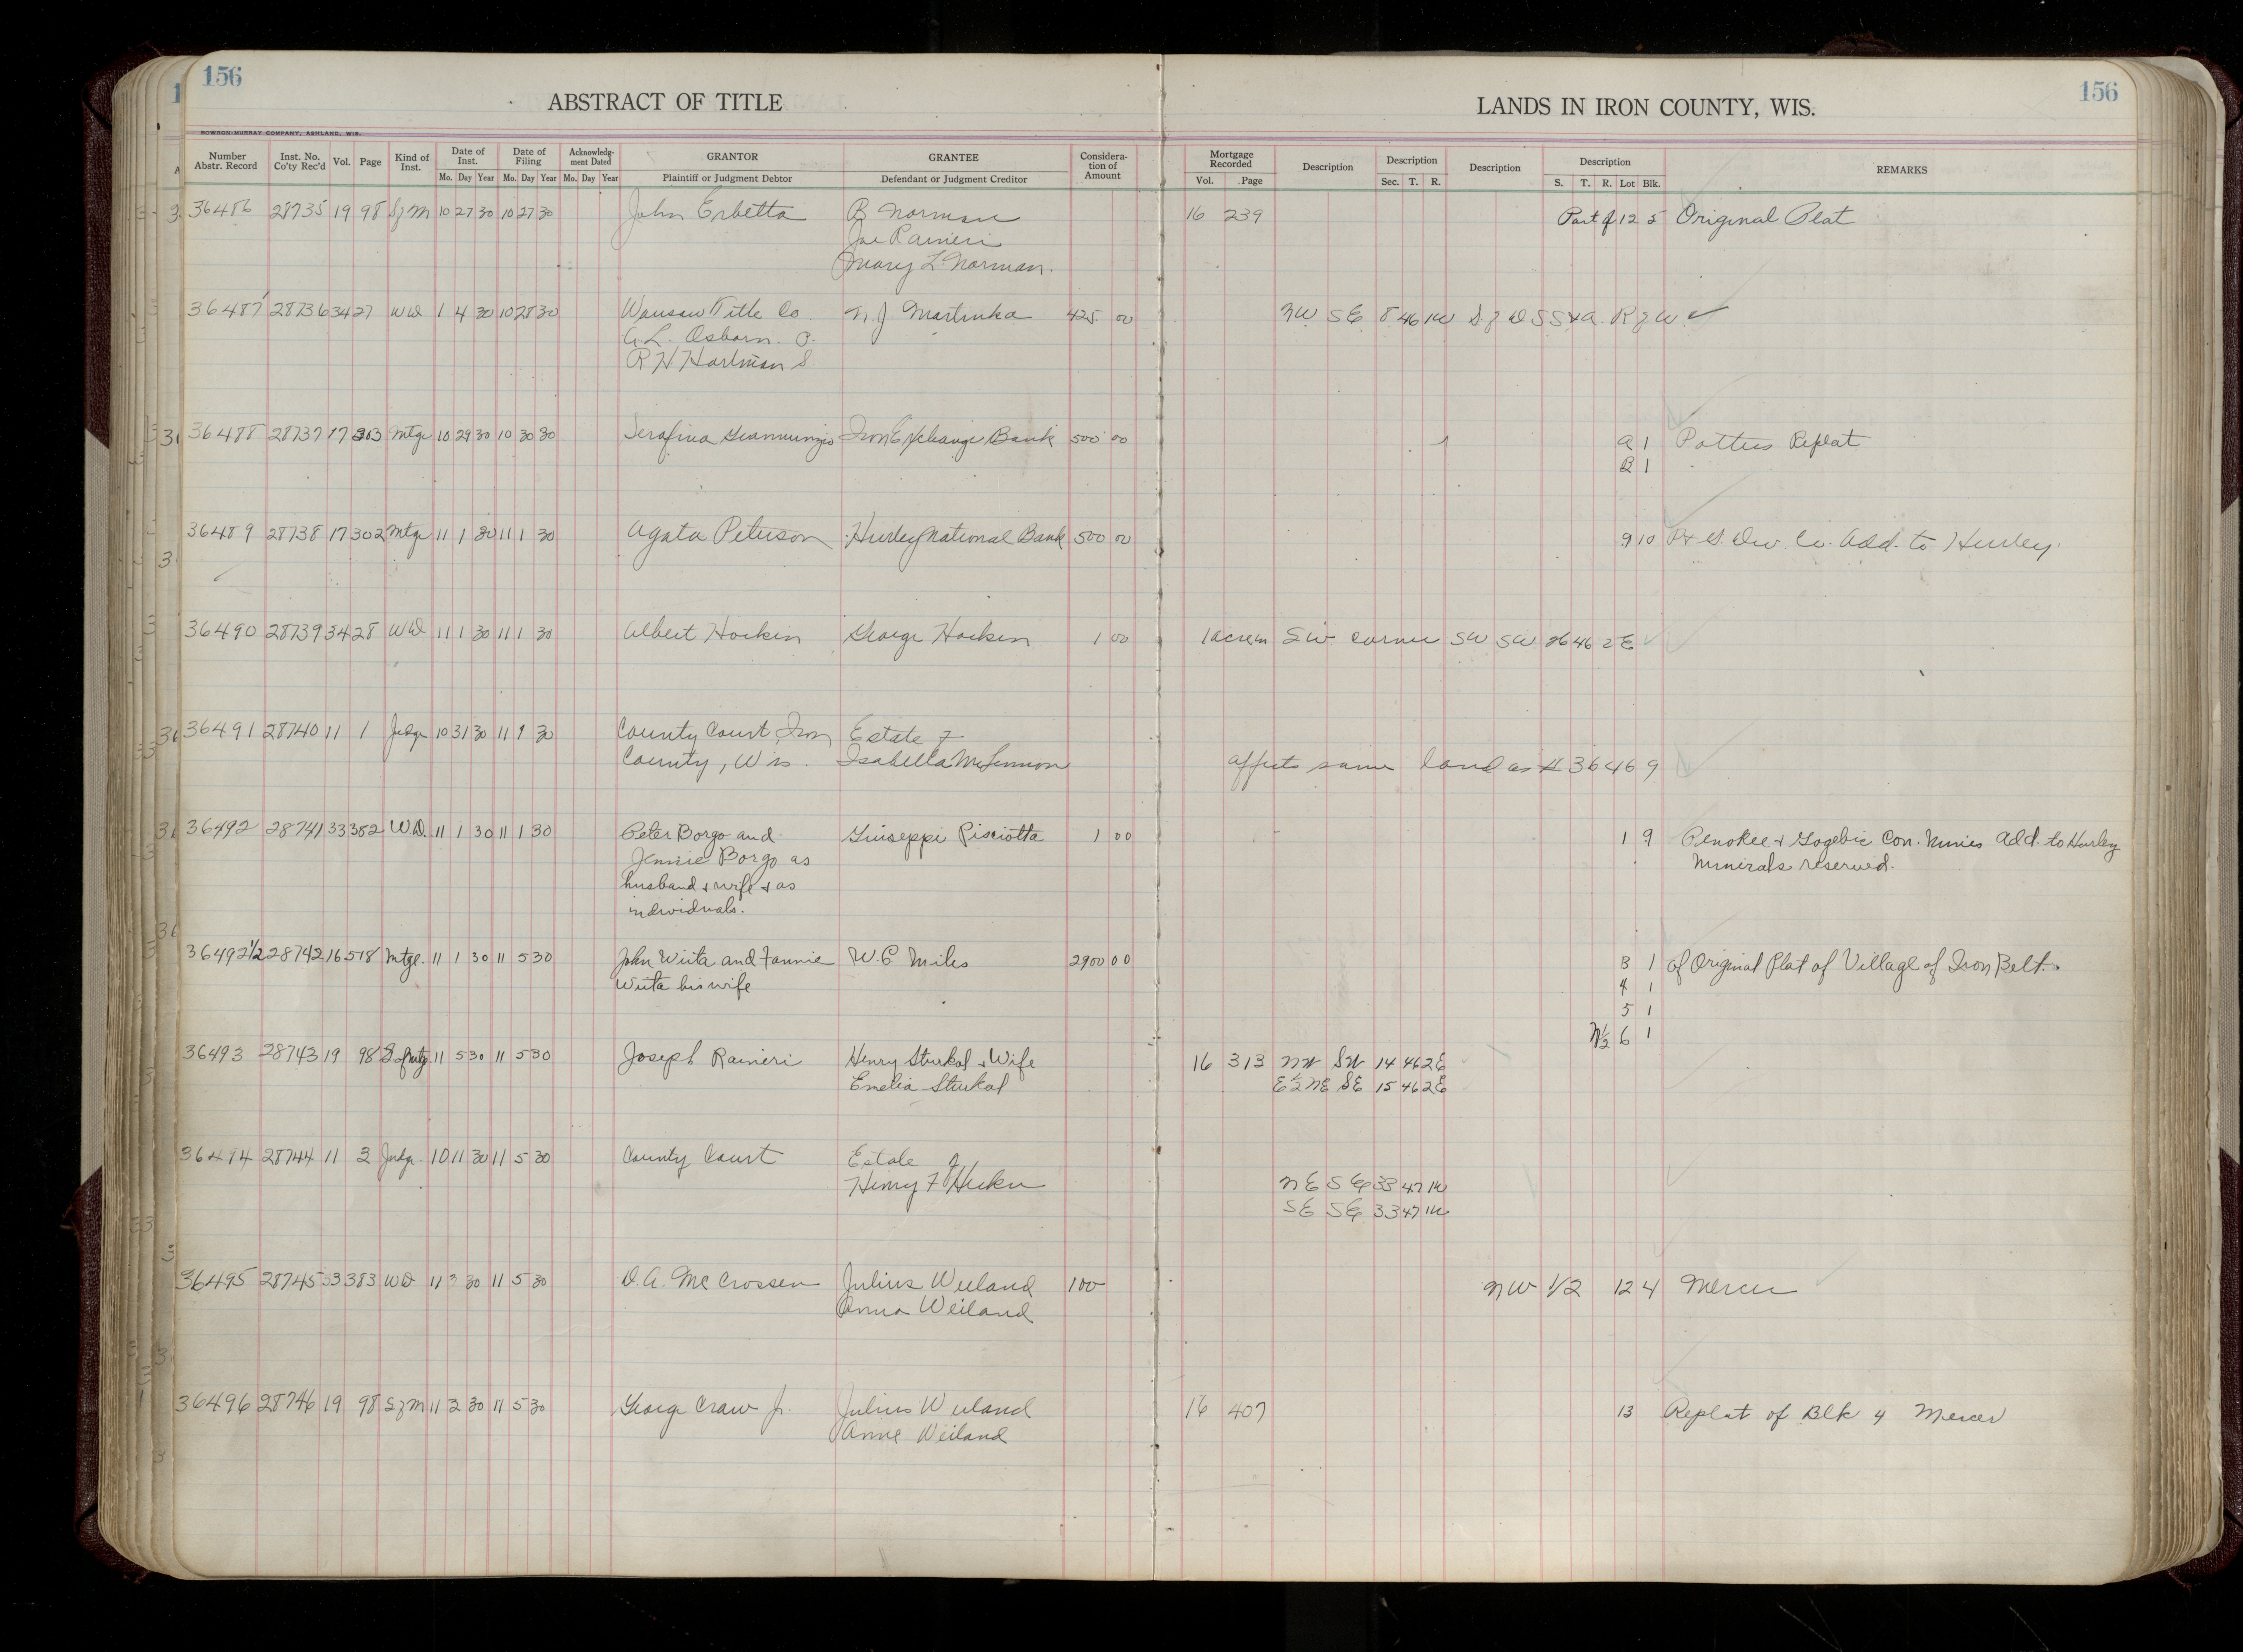 156
ABSTRACT OF TITLE
LANDS IN IRON COUNTY, WIS.
156
BOWRON-MURRAY COMPANY, ASHLAND, WIS.
Number Abstr. Record Inst. No. Co'ty Rec'd Vol. Page Kind of Inst. Date of Inst. Date of Filing Acknowledg-ment Dated GRANTOR GRANTEE Considera-tion of Amount Mortgage Recorded Description Description Description Description REMARKS
Mo. Day Year Mo. Day Year Mo. Day Year Plaintiff or Judgment Debtor Defendant or Judgment Creditor Vol. Page Sec. T. R. S. T. R. Lot Blk.
36486 28735 19 98 S of M 10 27 30 10 27 30 John Erbetta B Norman 16 239 Part of 12 5 Original Plat
Joe Ranieri
Mary L Norman.
36487 28736 34 27 WD 1 4 30 10 28 30 Wausau Title Co. N. J. Martinka 425 00 NW SE 8 46 1W S of D S S & A R of W ✓
G.L. Osborn. P.
R H Hartman S
36488 28737 17 303 Mtge 10 29 30 10 30 30 Serafina Giannunzio Iron Exchange Bank 500 00 A 1 Potters Replat
B 1
36489 28738 17 302 Mtge 11 1 30 11 1 30 Agata Peterson Hurley National Bank 500 00 9 10 P & G. Dev. Co. Add. to Hurley.
36490 28739 34 28 WD 11 1 30 11 1 30 Albert Hocken George Hocken 1 00 1 acre in SW corner SW SW 26 46 2E
36491 28740 11 1 Judge 10 31 30 11 9 30 County Court, Iron Estate of
County, Wis. Isabella McLennon affects same land as # 36469
36492 28741 33 382 W.D. 11 1 30 11 1 30 Peter Borgo and Giuseppi Pisciotta 1 00 1 9 Penokee & Gogebic Con. Mines Add. to Hurley
Jennie Borgo as Minirals reserved.
husband & wife & as
individuals.
36492 1/2 28742 16 518 Mtge. 11 1 30 11 5 30 John Wiita and Fannie W.C Miles 2900 00 3 1 of Original Plat of Village of Iron Belt.
Wiita his wife 4 1
5 1
N 1/2 6 1
36493 28743 19 98 S of Mtg. 11 5 30 11 5 30 Joseph Ranieri Henry Stukal & Wife 16 313 NW SW 14 46 2E
Emelia Stukal E 1/2 NE SE 15 46 2E
36494 28744 11 3 Judge 10 11 30 11 5 30 County Court Estate of
Henry F NE SE 33 47 1W
SE SE 33 47 1W
36495 28745 33 383 WD 11 3 30 11 5 30 D.A. McCrossen Julius Weiland 100 NW 1/2 12 4 Mercer
Anna Weiland
36496 28746 19 98 S of M 11 3 30 11 5 30 George Craw Jr. Julius Weiland 16 407 13 Replat of Blk 4 Mercer
Anna Weiland